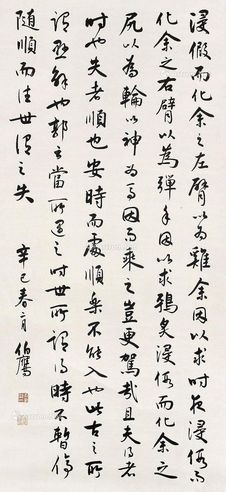 浸假而化余之左臂以為雞余因以求時夜浸假而
化余之右臂以為彈予因以求鴞炙浸假而化余之
尻以為輪以神為馬因而乘之豈更駕哉且夫得者
時也失者順也安時而處順樂不能入也此古之所
謂縣解也郭云當所遇之時世所謂得時不暫停
隨順而往世謂之失
辛巳春月 伯鷹